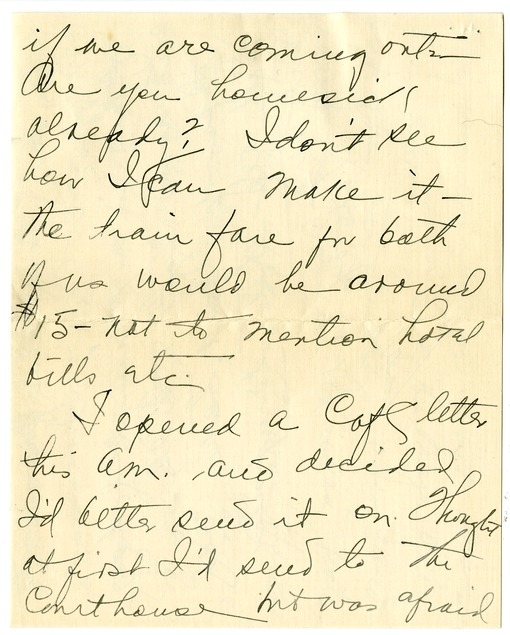 if we are coming out—
Are you homesick
already? I don't see
how I can make it —
the train fare for both
of us would be around
$15 - not to mention hotel
bills etc.
I opened a C of C letter
this a.m. and decided
I'd better send it on. Thought
at first I'd send to the
Courthouse but was afraid